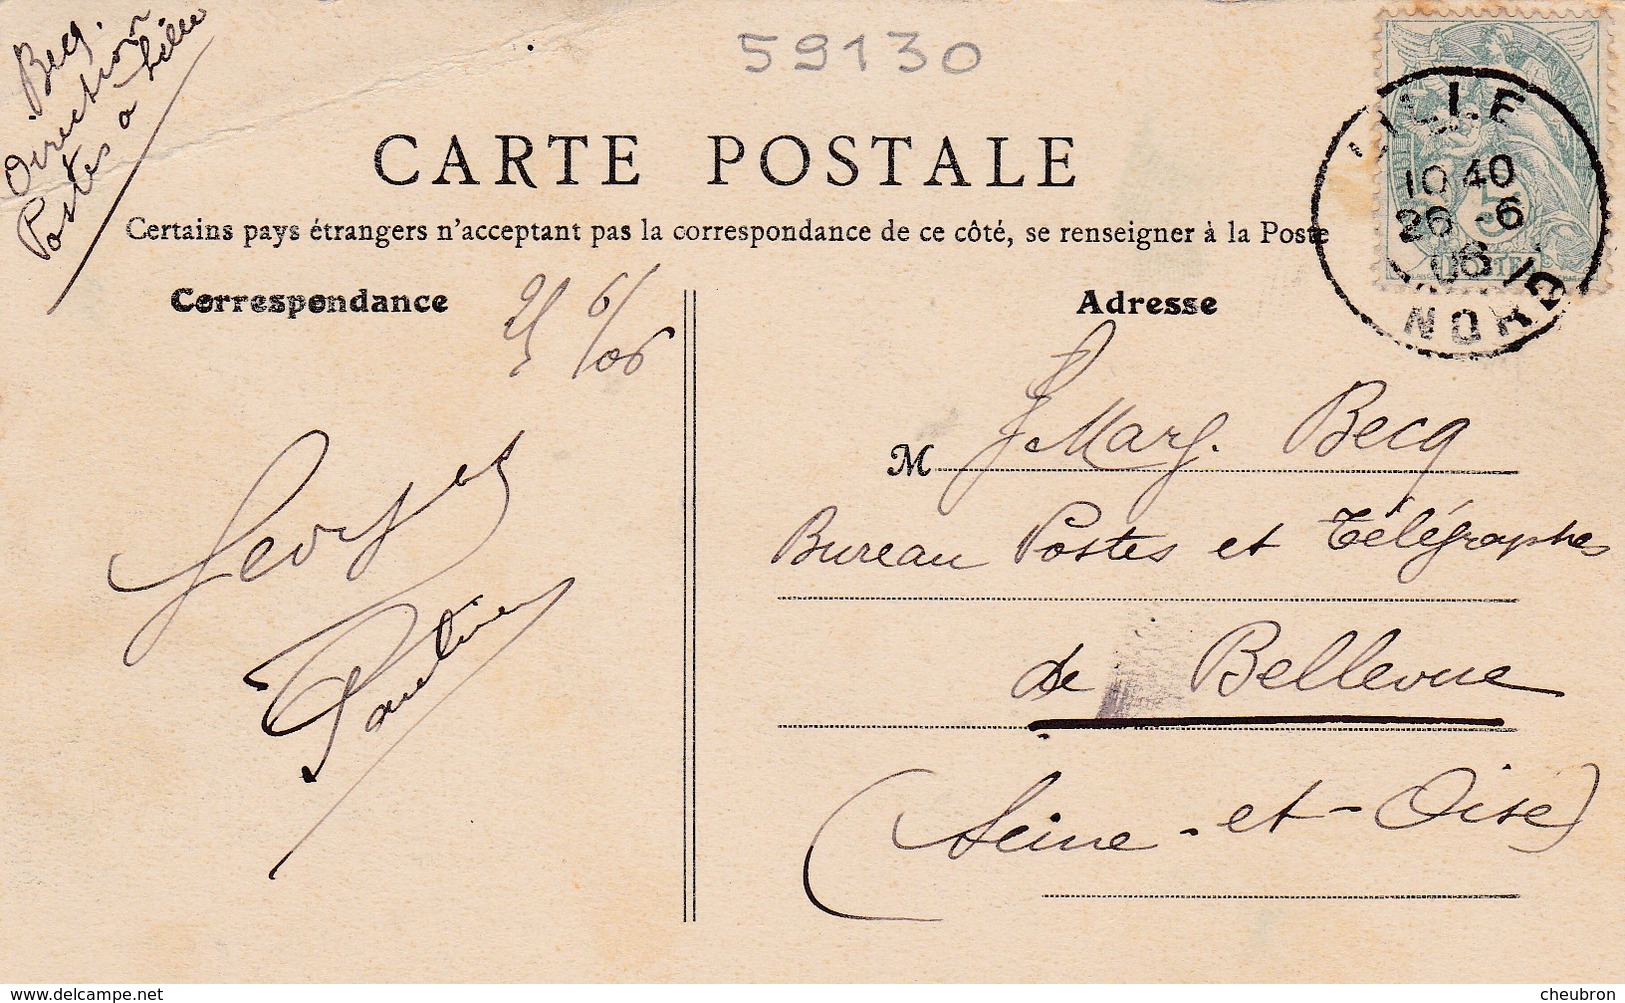 Becq.
Direction
Postes a Lille
59130
CARTE POSTALE
Certains pays étrangers n'acceptant pas la correspondance de ce côté, se renseigner à la Poste
Correspondance
Adresse
25/6/06
LILLE
10 40
26 -6
06
NORD
5
POSTES
M Marg. Becq
Bureau Postes et Télégraphes
de Bellevue
(Seine-et-Oise)
Georges
delcampe.net
cheubron